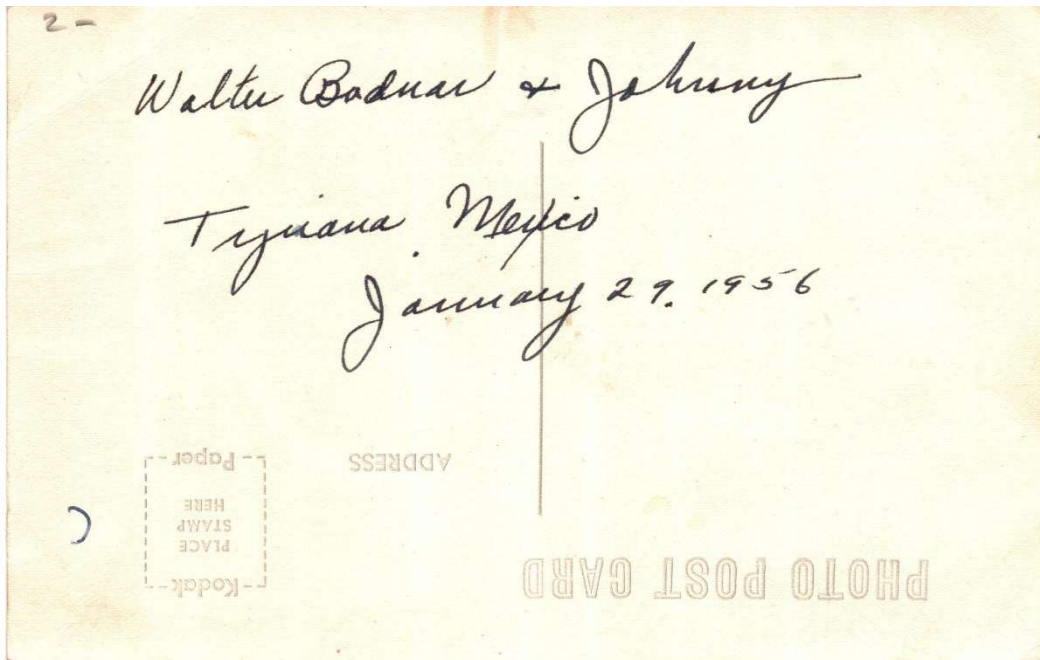 2-
Walter Bodnar & Johnny
Tijuana Mexico
January 29. 1956
PHOTO POST CARD
ADDRESS
Kodak
PLACE
STAMP
HERE
Paper